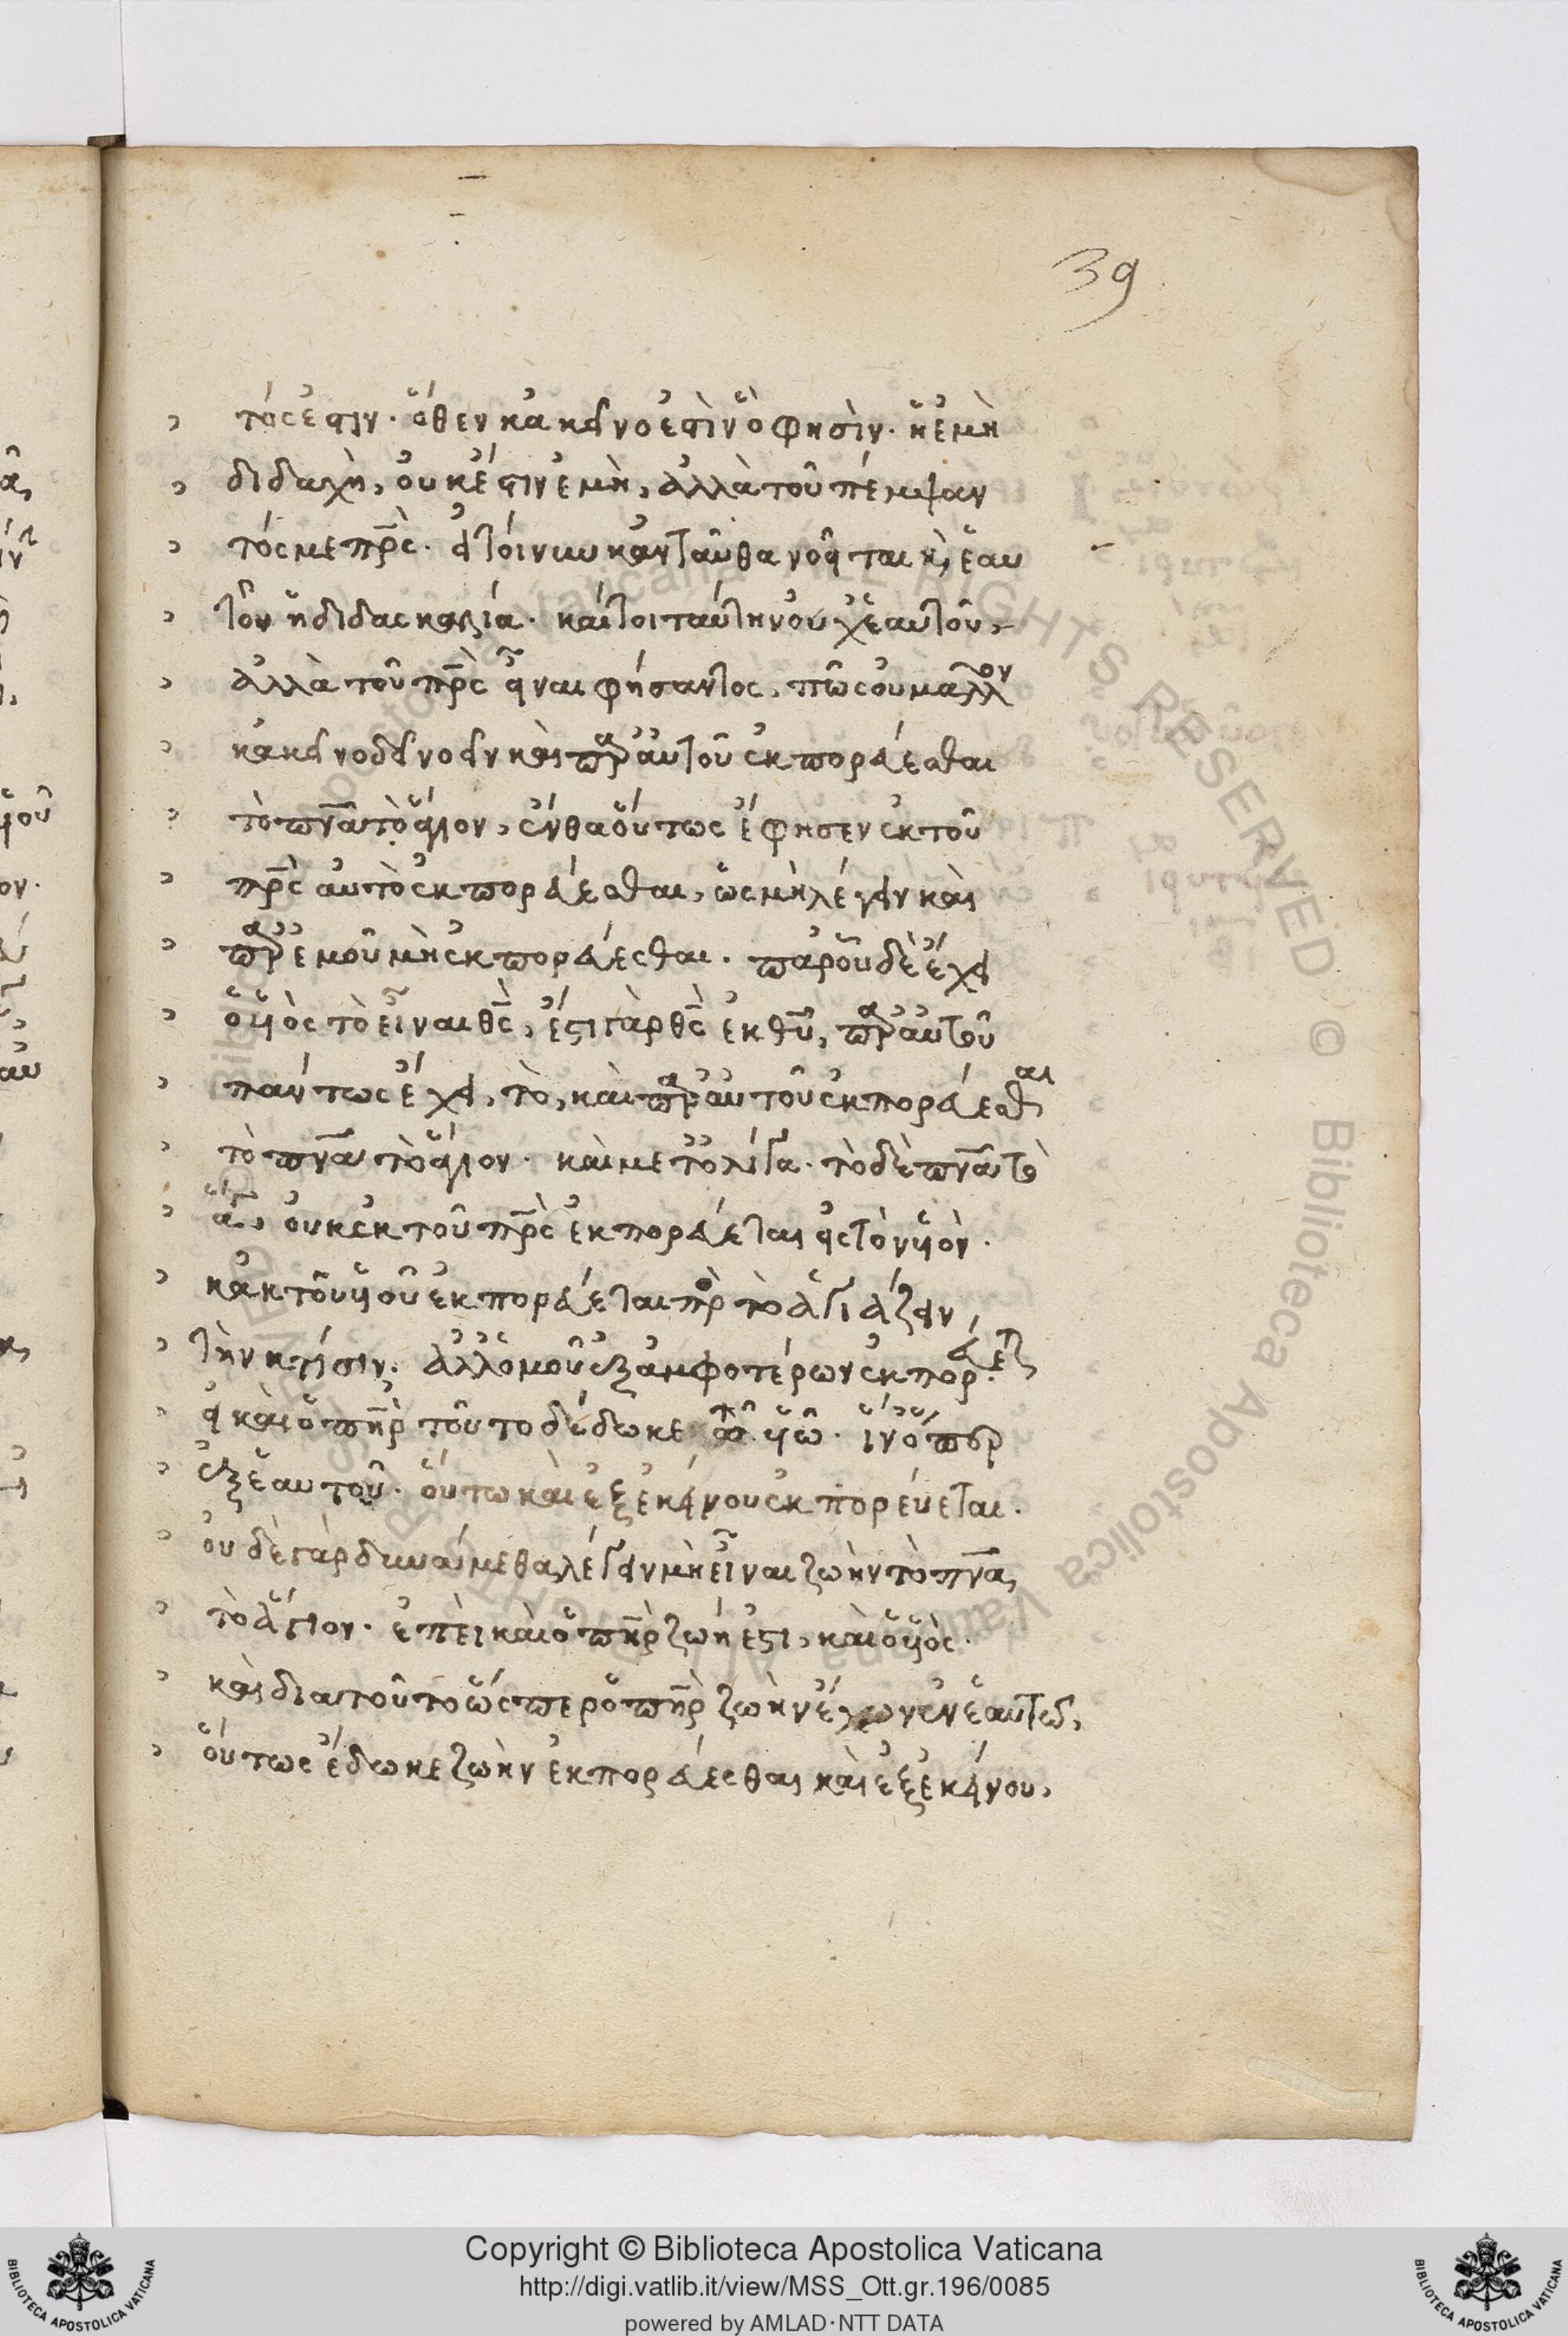 39
τός ἐστιν. ὅθεν κἀκεῖνο ἐστὶν ὅ φησὶν. ἡ ἐμὴ
διδαχὴ, οὐκ ἔστιν ἐμὴ, ἀλλὰ τοῦ πέμψαν
τός με πρ̅ς. εἰ τοίνυν κἀνταῦθα νοεῖται κ(αὶ) ἑαυ
τοῦ ἡ διδασκαλία. καίτοι ταύτην οὐχ ἑαυτοῦ,
ἀλλὰ τοῦ πρ̅ς εἶναι φήσαντος, πῶς οὐ μᾶλλον
κἀκεῖνο δεῖ νοεῖν καὶ παρ' αὐτοῦ ἐκπορεύεσθαι
τὸ πν̅α τὸ ἅγιον, ἔνθα οὕτως ἔφησεν ἐκ τοῦ
πρ̅ς αὐτὸ ἐκπορεύεσθαι, ὡς μὴ λέγειν καὶ
παρ' ἐμοῦ μὴ ἐκπορεύεσθαι. παρ' οὗ δὲ ἔχει
ὁ υἱὸς τὸ εἶναι θ̅ς, ἔστι γὰρ θ̅ς ἐκ θ̅υ, παρ' αὐτοῦ
πάντως ἔχει, τὸ, καὶ παρ' αὐτοῦ ἐκπορεύεσθαι
τὸ πν̅α τὸ ἅγιον. καὶ μετ' ὀλίγα. τὸ δὲ πν̅α τὸ
ἅγ, οὐκ ἐκ τοῦ πρ̅ς ἐκπορεύεται εἰς τὸν υἱὸν.
κἀκ τοῦ υἱοῦ ἐκπορεύεται πρὸ τὸ ἁγιάζειν
τὴν κτίσιν. ἀλλ' ὁμοῦ ἐξ ἀμφοτέρων ἐκπορεύετ
εἰ καὶ ὁ πη̅ρ τοῦτο δέδωκε τῷ υἱῷ. ἵν' ὅπερ
ἐξ ἑαυτοῦ. οὕτω καὶ ἐξ ἐκείνου ἐκπορεύεται.
οὐδὲ γὰρ δυνάμεθα λέγειν μὴ εἶναι ζωὴν τὸ πν̅α
τὸ ἅγιον. ἐπεὶ καὶ ὁ πη̅ρ ζωή ἐστι, καὶ ὁ υἱὸς.
καὶ διατοῦτο ὥσπερ ὁ πη̅ρ ζωὴν ἔχων ἐν ἑαυτῷ,
οὕτως ἔδωκε ζωὴν ἐκπορεύεσθαι καὶ ἐξ ἐκείνου,
Copyright © Biblioteca Apostolica Vaticana
http://digi.vatlib.it/view/MSS_Ott.gr.196/0085
powered by AMLAD·NTT DATA